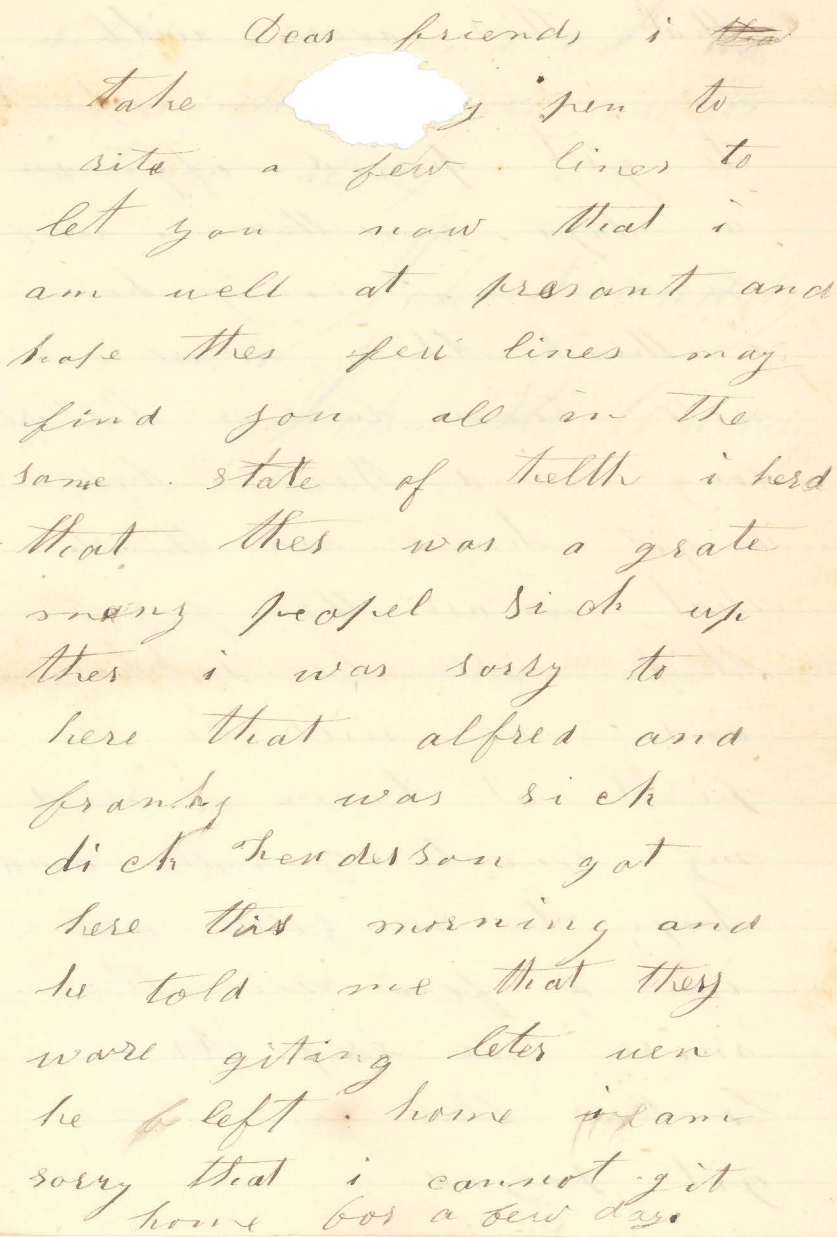 Dear friends i
take y pen to
rite a few lines to
let you now that i
am well at presant and
hope thes few lines may
find you all in the
same state of helth i herd
that ther was a grate
many peopel sick up
ther i was sorry to
here that alfred and
franky was sick
dick henderson got
here this morning and
he told me that they
ware giting beter wen
he left home i am
sorry that i cannot git
home for a few days